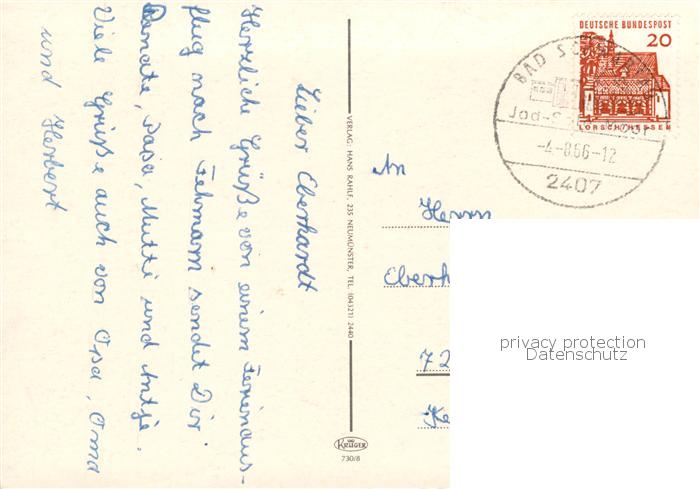 Lieber Eberhardt
Herzliche Grüße von einem Ferienaus-
flug nach Fehmarn sendet Dir
Renate, Papa, Mutti und Antje.
Viele Grüße auch von Opa, Oma
und Herbert
VERLAG: HANS RAHLF, 235 NEUMÜNSTER, TEL. (04321) 2440
KRÜGER
730/8
DEUTSCHE BUNDESPOST
20
LORSCH/HESSEN
BAD
Jod-
-4.-8.66-12
2407
An
Herrn
Eberh
72
privacy protection
Datenschutz